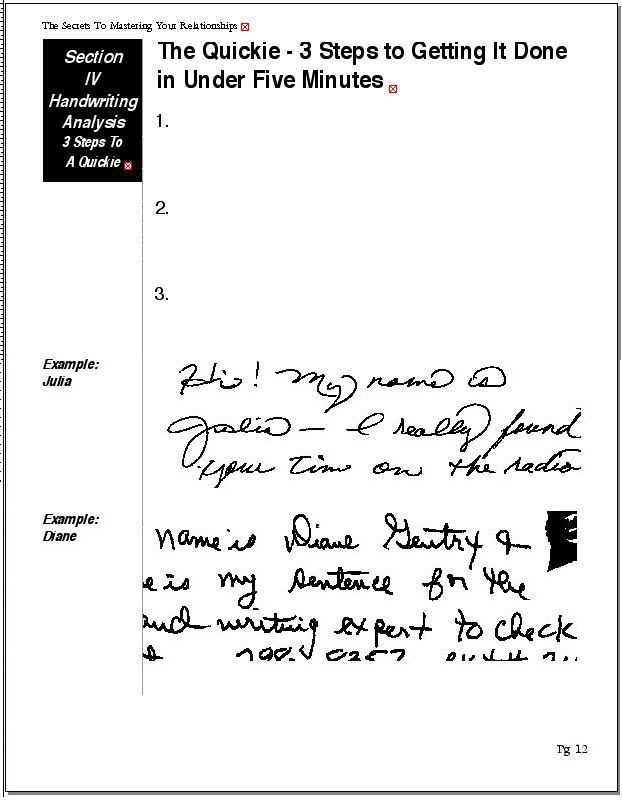 The Secrets To Mastering Your Relationships
Section
IV
Handwriting
Analysis
3 Steps To
A Quickie
The Quickie - 3 Steps to Getting It Done
in Under Five Minutes
1.
2.
3.
Example:
Julia
Hi! My name is
Julia — I really found
your time on the radio
Example:
Diane
name is Diane Gentry &
e is my sentence for the
and writing expert to check
Pg 12